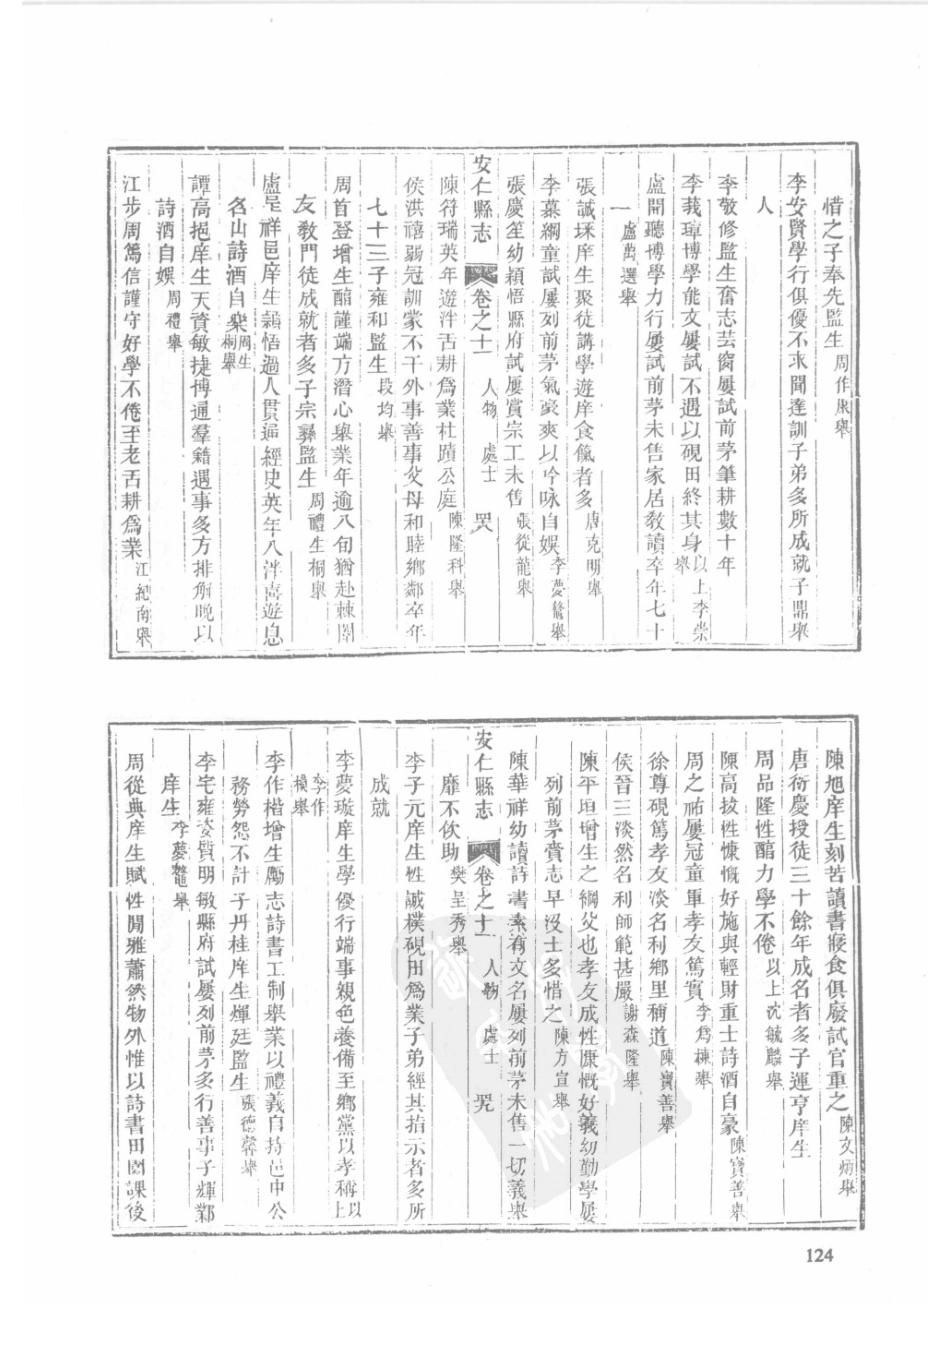 惜之子奉先監生周作康舉
李安賢學行俱優不求聞達訓子弟多所成就子鼎舉
人
李敬修監生奮志芸窗屢試前茅筆耕數十年
李莪璋博學能文屢試不遇以硯田終其身以上李崇舉
盧開聽博學力行屢試前茅未售家居敎讀卒年七十
一盧嵩選舉
張誠琜庠生聚徒講學遊庠食餼者多唐克明舉
李慕綱童試屢列前茅氣豪爽以吟咏自娛李夢鰲舉
張慶笙幼穎悟縣府試屢賞宗工未售張從龍舉
安仁縣志 卷之十一 人物 處士 哭
陳符瑞英年遊泮舌耕爲業杜蹟公庭陳隆科舉
侯洪禧弱冠訓蒙不干外事善事父母和睦鄉鄰卒年
七十三子雍和監生段均舉
周首登增生醕謹端方潛心舉業年逾八旬猶赴棘闈
友敎門徒成就者多子宗彝監生周禮生桐舉
盧呈祥邑庠生穎悟過人貫通經史英年入泮喜遊息
名山詩酒自樂周生桐舉
譚高挹庠生天資敏捷博通羣籍遇事多方排解晚以
詩酒自娛周禮舉
江步周篤信謹守好學不倦至老舌耕爲業江紀南舉
陳旭庠生刻苦讀書寢食俱廢試官重之陳文炳舉
唐衍慶授徒三十餘年成名者多子運亨庠生
周品隆性醕力學不倦以上沈毓麟舉
陳高拔性慷慨好施與輕財重士詩酒自豪陳寶善舉
周之祐屢冠童軍孝友篤實李爲棟舉
徐尊硯篤孝友淡名利鄉里稱道陳寶善舉
侯晉三淡然名利師範甚嚴謝森隆舉
陳平垣增生之綱父也孝友成性慷慨好義幼勤學屢
列前茅賫志早沒士多惜之陳方宣舉
陳華祥幼讀詩書素有文名屢列前茅未售一切義舉
安仁縣志 卷之十一 人物 處士 哭
靡不佽助樊呈秀舉
李子元庠生性誠樸硯田爲業子弟經其指示者多所
成就
李夢璇庠生學優行端事親色養備至鄉黨以孝稱以上
李作楨舉
李作楷增生勵志詩書工制舉業以禮義自持邑中公
務勞怨不計子丹桂庠生輝廷監生張德馨舉
李宅雍姿質明敏縣府試屢列前茅多行善事子輝鄴
庠生李夢鰲舉
周從典庠生賦性閒雅蕭然物外惟以詩書田園課後
124